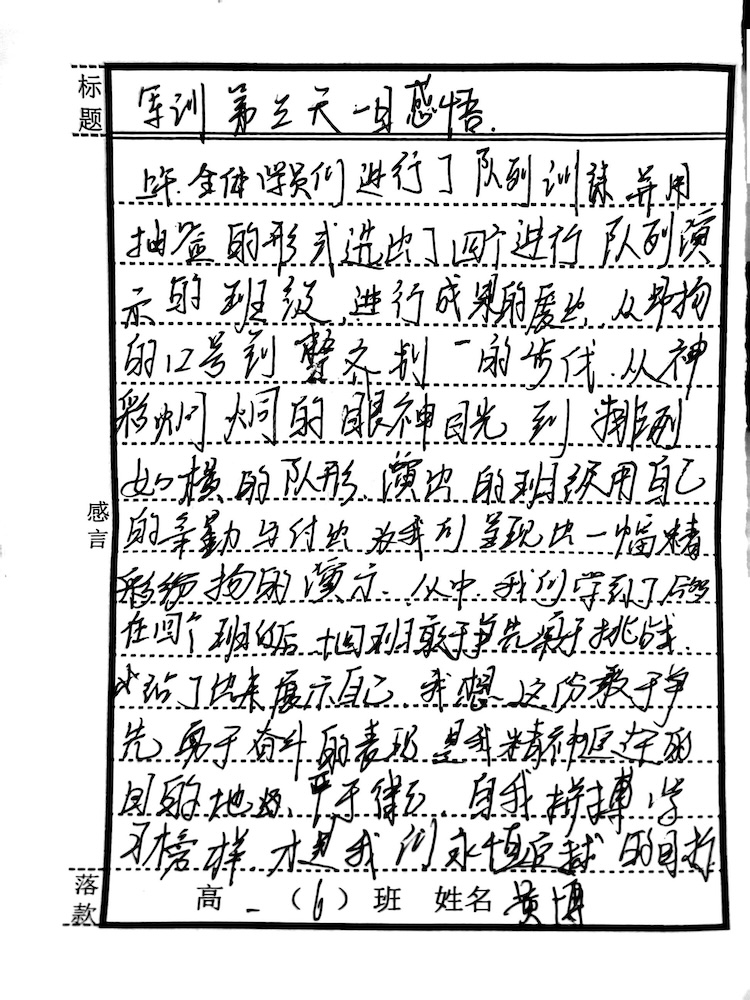 标题
军训第三天—日感悟.
上午.全体学员们进行了队列训练并用
抽签的形式选出了四个进行队列演
示的班级,进行成果的展出,从昂扬
的口号到整齐划一的步伐.从神
彩炯炯的眼神目光到排列
如横的队形,演出的班级用自己
的辛勤与付出为我们呈现出一幅精
彩纷扬的演示.从中,我们学到了
在四个班的后十四班敢于争先敢于挑战.
站了出来展示自己,我想这份敢于争
先勇于奋斗的表现是我精神
回的地方、严于律己,自我拼搏,学
习榜样,才是我们永恒追球的目标
感言
落款
高一(6)班 姓名 黄博